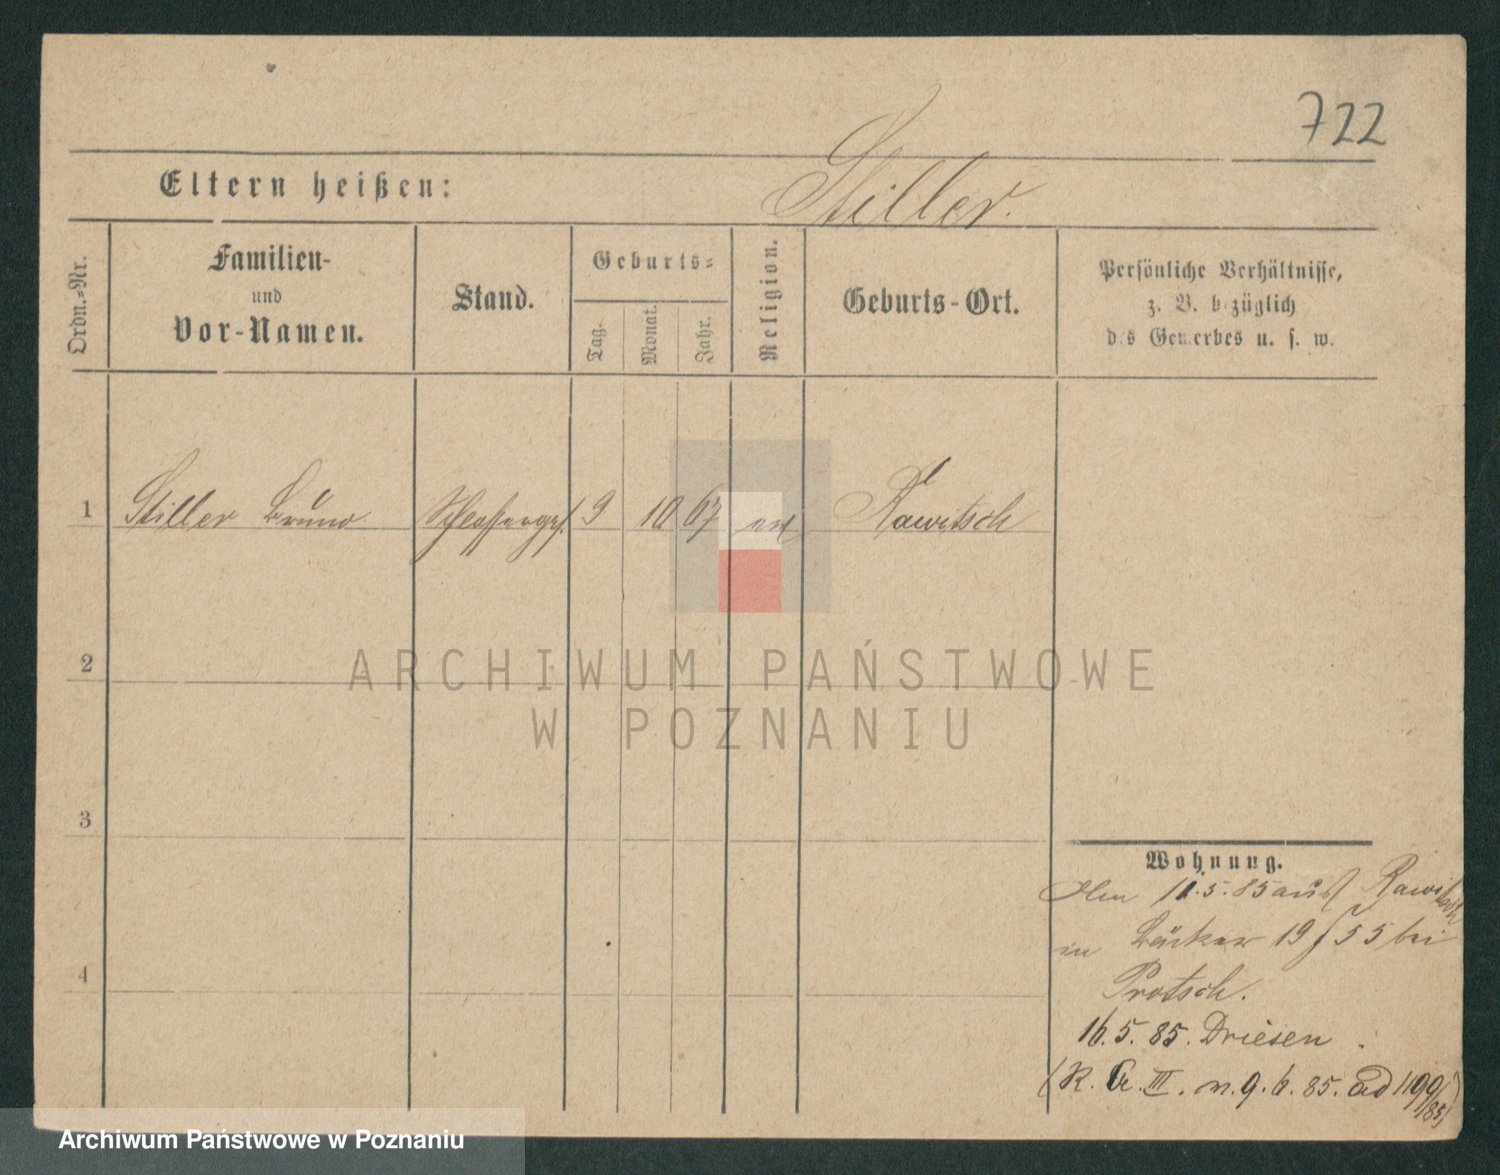 722
Eltern heißen:
Stiller.
Ordn.-Nr.
Familien-
und
Vor-Namen.
Stand.
Geburts-
Tag.
Monat.
Jahr.
Religion.
Geburts-Ort.
Persönliche Verhältnisse,
z. B. bezüglich
des Gewerbes u. s. w.
1 Stiller Bruno Schlosserges. 9 10 67 ev Rawitsch
2
3
4
ARCHIWUM PAŃSTWOWE
W POZNANIU
Wohnung.
5.85 aus Rawitsch
in Bäcker 19 55 bei
Protsch.
16.5.85. Driesen.
(R. III. 9.6.85. ad 1199/85)
Archiwum Państwowe w Poznaniu